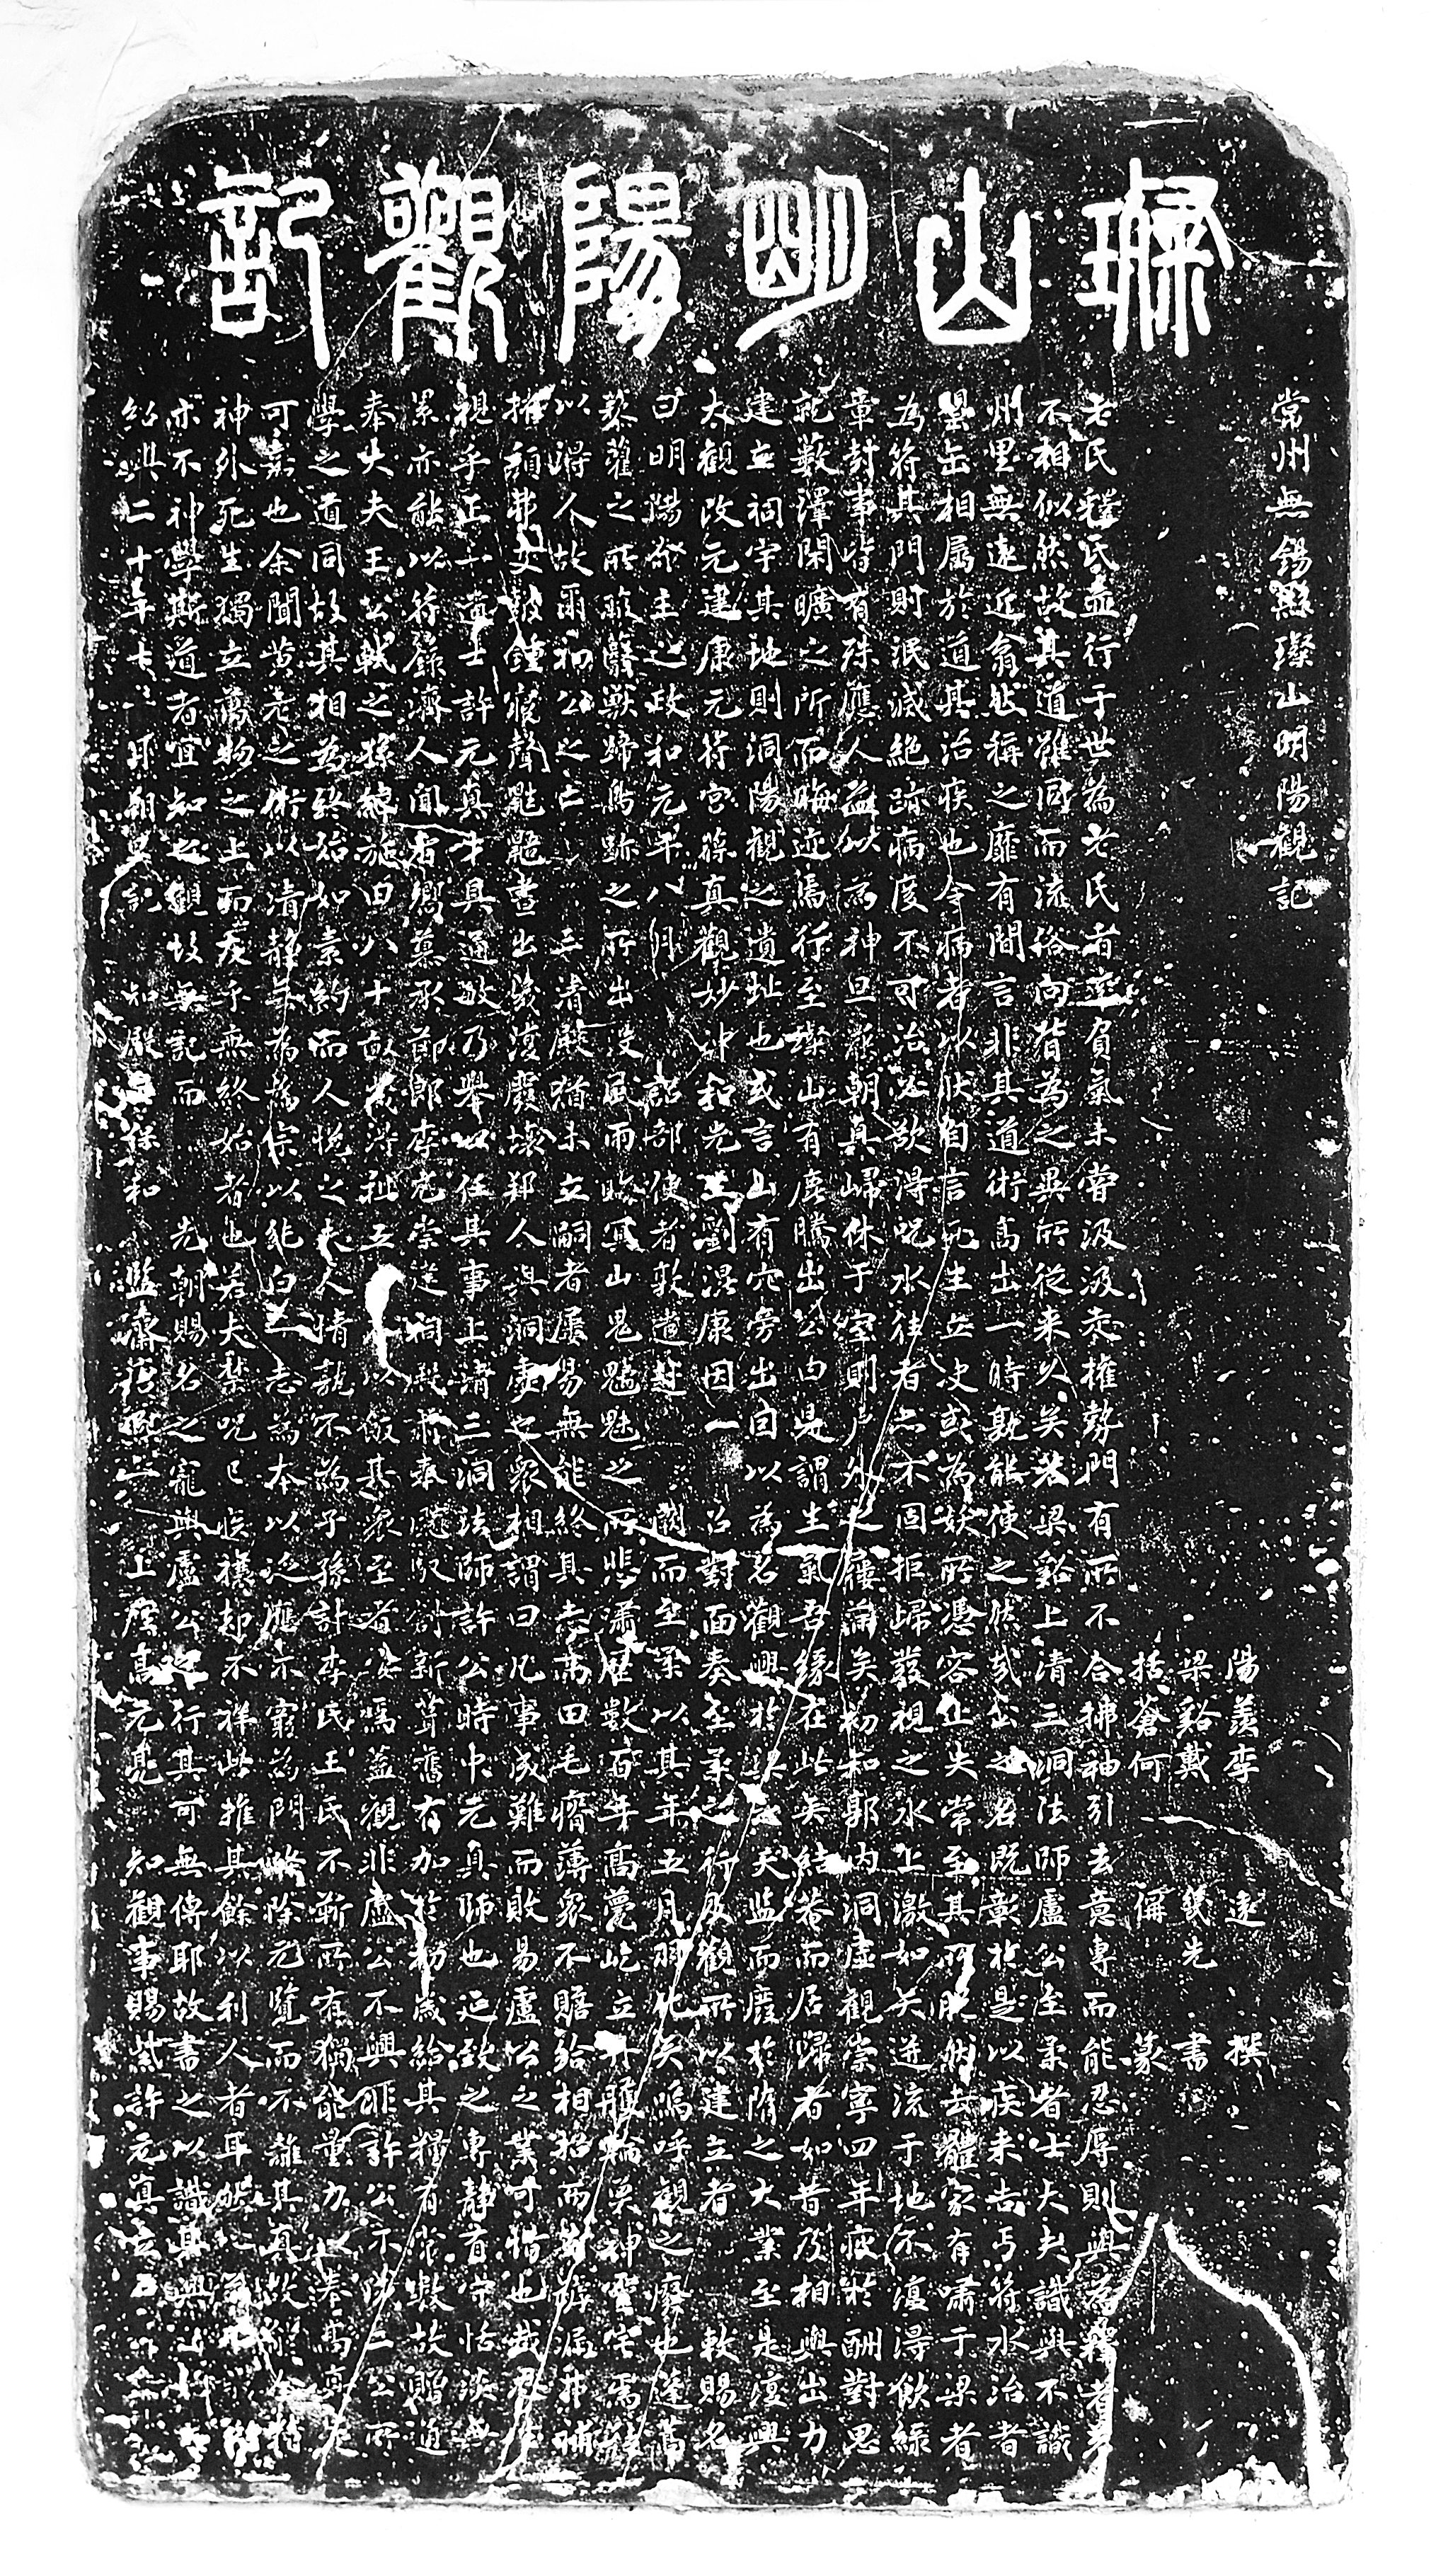 璨山明陽觀記
常州無錫縣璨山明陽觀記
陽羨李 遠 撰
梁谿戴 幾先 書
括蒼何 偁 篆
老氏釋氏並行于世為老氏者率負氣未嘗汲汲於權勢門有所不合拂袖引去意專而能忍辱則與為釋者
不相似然故其道雖同而流俗向背為之異所從來久矣若梁谿上清三洞法師盧公至柔者士大夫識與不識
州里無遠近翕然稱之靡有間言非其道術高出一時孰能使之然哉公之名既彰於是以疾來告丐符水治者
堊缶相屬於道其治疾也令病者以狀自言死生立決或為妖所憑容止失常至其所脫然去體家有嘯于梁者
為符其門則泯滅絕跡病度不可治必歎得呪水往者亦不固拒歸發視之水上激如矢迸流于地不復得飲綠
章封事皆有殊應人益以為神旦夜朝真歸休于室則戶外之屨滿矣初和郭內洞虛觀崇寧四年疲於酬對思
就藪澤閑曠之所而晦迹焉行至璨山有鹿騰出公曰是謂生氣吾緣在此矣結菴而居歸者如昔及相與出力
建立祠宇其地則洞陽觀之遺址也或言山有穴旁出因以為名觀興於梁之天監而廢於隋之大業至是復興
大觀改元建康元符宮葆真觀妙沖和先生劉混康因 召對面奏至柔之行及觀所以建立者 敕賜名
曰明陽 主之政和元年八月 詔部使者敦遣赴 闕而至柔以其年五月羽化矣嗚呼觀之廢也蓬蒿
藜藿之所 翳獸蹄鳥跡之所出沒風雨晦冥山鬼魑魅之所悲嘯歷數百年高甍屹立 輪奐神靈宅焉
以得人故爾初公之亡 三清殿猶未立嗣者屢易無能終其志高田毛瘠薄眾不贍給相招而 補
推頹 殳鼓鐘寢聲 鼯晝出幾復廢壞郡人洞虛也眾相謂曰凡事成難而敗易盧公之業可惜也
視乎正一道士許元真才具通敏乃舉以任其事上清三洞法師許公時中元真師也迎致之專靜自守恬淡
累亦能以符籙濟人聞者 慕承節郎李允崇建祠殿 奉 創新葺舊有加於初歲給其糧有常數故贈通
奉大夫王公 之孫 施田八十畝歲 租五 以飯其眾至者 焉蓋觀非盧公不興非許公不 二公所
學之道同故其相為終始如素約而人悅之夫人情孰不為子孫計李氏王氏不靳所有猶能量力以奉
可嘉也余聞黃老之術以清靜無為為宗以純白 志為本以 應不窮為門 除元覽而不離其真故
神外死生獨立萬物之上而友乎無終始者也若夫禁呪已疾禳却不祥此推其餘以利人者耳
亦不神學斯道者宜知之觀故無記而 先朝賜名之寵與盧公之行其可無傳耶故書之以識其興
紹興二十年七月朔旦記 知殿 保和 監齋 上座高元亮 知觀事賜紫許元真立石